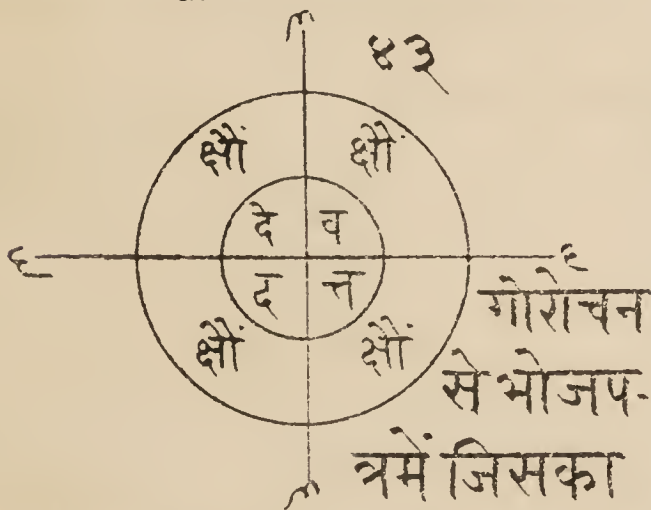 ४३
क्षौं क्षौं
दे व
द त्त
क्षौं क्षौं
गोरोचन
से भोजप-
त्रमें जिसका